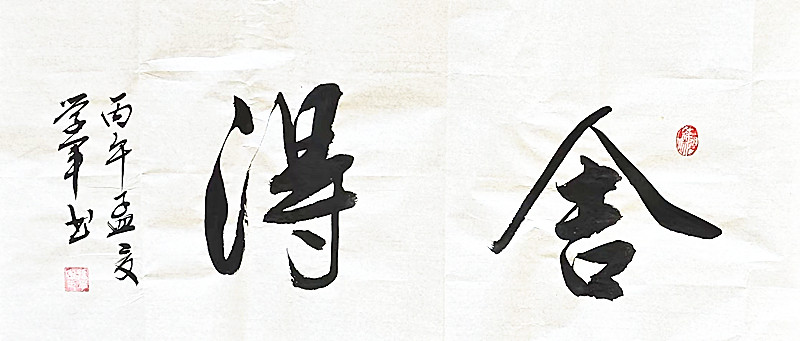 舍得
丙午孟夏
学军书